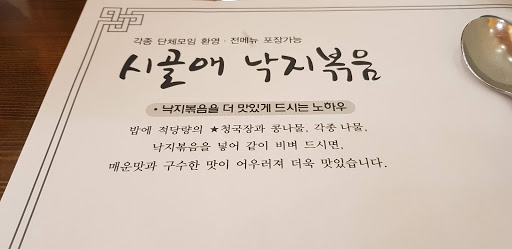 각종 단체모임 환영 · 전메뉴 포장가능
시골애 낙지볶음
• 낙지볶음을 더 맛있게 드시는 노하우
밥에 적당량의 ★청국장과 콩나물, 각종 나물,
낙지볶음을 넣어 같이 비벼 드시면,
매운맛과 구수한 맛이 어우러져 더욱 맛있습니다.